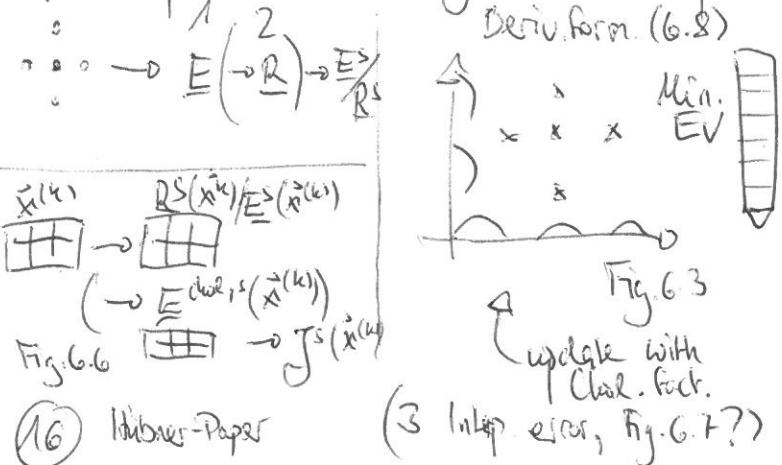 1 2
→ E (→ R) → E^S/R^S
x^(k) R^S(x^k)/E^S(x^(k))
(→ E^chol,s (x^(k))
→ J^S(x^(k)
Fig. 6.6
16 Hübner-Paper
Deriv. form. (6.8)
Min.
EV
Fig. 6.3
update with
Chol. fact.
(3 Interp. error, Fig. 6.7?)